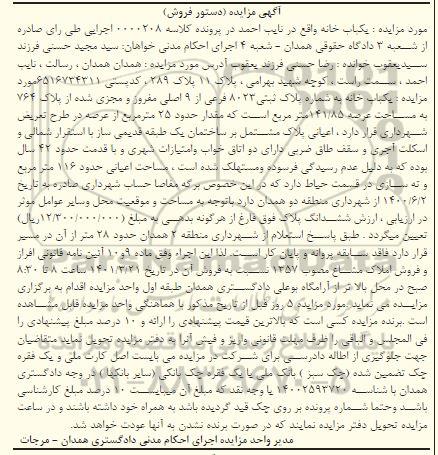 آگهی مزایده (دستور فروش)
مورد مزایده : یکباب خانه واقع در نایب احمد در پرونده کلاسه ۰۰۰۰۲۰۸ اجرایی طی رای صادره
از شعبه ۳ دادگاه حقوقی همدان - شعبه ۴ اجرای احکام مدنی خواهان: سید مجید حسنی فرزند
سیدیعقوب خوانده : رضا حسنی فرزند یعقوب آدرس مورد مزایده : همدان همدان ، رسالت ، نایب
احمد ، سمت راست ، کوچه شهید بهرامی ، پلاک ۱۱ پلاک ۲۸۹ ، کدپستی ۶۵۱۶۷۳۴۳۱۱مورد
مزایده : یکباب خانه به شماره پلاک ثبتی۸۰۲۳ فرعی از ۹ اصلی مفروز و مجزی شده از پلاک ۷۶۴
به مساحت عرصه ۱۴۱/۸۵متر مربع است که مقدار حدود ۲۵ مترمربع از عرصه در طرح تعریض
شهرداری قرار دارد ، اعیانی پلاک مشتمل بر ساختمان یک طبقه قدیمی ساز با استقرار شمالی و
اسکلت آجری و سقف طاق ضربی دارای دو اتاق خواب وامتیازات شهری و با قدمت حدود ۴۲ سال
بوده که به دلیل عدم رسیدگی فرسوده ومستهلک شده است ، مساحت اعیانی حدود ۱۱۶ متر مربع
و ته سازی در قسمت حیاط دارد که در این خصوص برگه مفاصا حساب شهرداری صادره به تاریخ
۱۴۰۰/۶/۲ از شهرداری منطقه دو همدان دارد باتوجه به مساحت و موقعیت محل وسایر عوامل موثر
در ارزیابی ، ارزش ششدانگ پلاک فوق فارغ از هرگونه بدهی به مبلغ (۱۲/۳۰۰/۰۰۰/۰۰۰ریال)
تعیین میگردد . طبق پاسخ استعلام از شهرداری منطقه ۲ همدان حدود ۲۸ متر از آن در مسیر
قرار دارد فاقد سابقه پروانه و پایان کار است. لذا این اجراء وفق ماده ۹و۱۰ آئین نامه قانونی افراز
و فروش املاک مشاع مصوب ۱۳۵۷ نسبت به فروش آن در تاریخ ۱۴۰۱/۳/۲۱ ساعت ۸ تا ۸:۳۰
صبح در محل بالا تر از آرامگاه بوعلی دادگستری همدان طبقه اول واحد مزایده اقدام به برگزاری
مزایده می نماید مورد مزایده ۵ روز قبل از تاریخ مذکور با هماهنگی واحد مزایده قابل مشاهده
است .برنده مزایده کسی است که بالاترین قیمت پیشنهادی را ارائه و ۱۰ درصد مبلغ پیشنهادی را
فی المجلس و الباقی را ظرف مهلت قانونی واریز و فیش آنرا به دفتر مزایده تحویل نماید متقاضیان
جهت جلوگیری از اطاله دادرسی برای شرکت در مزایده می بایست اصل کارت ملی و یک فقره
چک تضمین شده (چک سبز ) بانک ملی یا یک فقره چک بانکی (سایر بانکها ) در وجه دادگستری
همدان با شناسه ۱۴۰۰۲۵۹۳۷۲۰ یا وجه نقد که مبلغ آن میبایست ۱۰ درصد مبلغ کارشناسی
باشد وحتما شماره پرونده بر روی چک قید گردیده باشد به همراه خود داشته باشند و در ساعت
مزایده تحویل دفتر مزایده نمایند که در صورت برنده نشدن به آنها عودت خواهد شد.
مدیر واحد مزایده اجرای احکام مدنی دادگستری همدان - مرجات